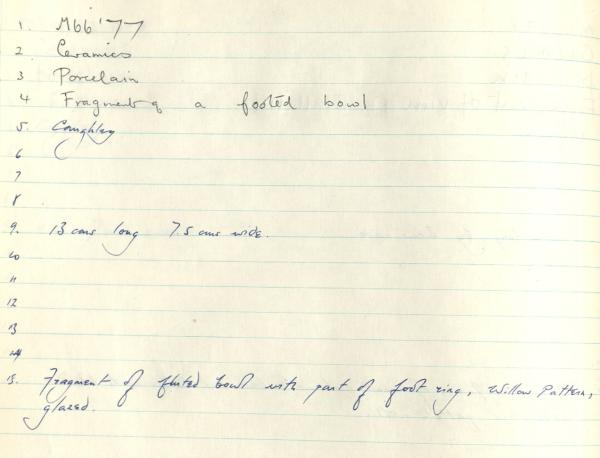 1. M66'77
2 Ceramics
3 Porcelain
4 Fragment of a footed bowl
5. Caughley
6
7
8
9. 13 cms long 7.5 cms wide.
10
11
12
13
14
15. Fragment of fluted bowl with part of foot ring, Willow Pattern,
glazed.